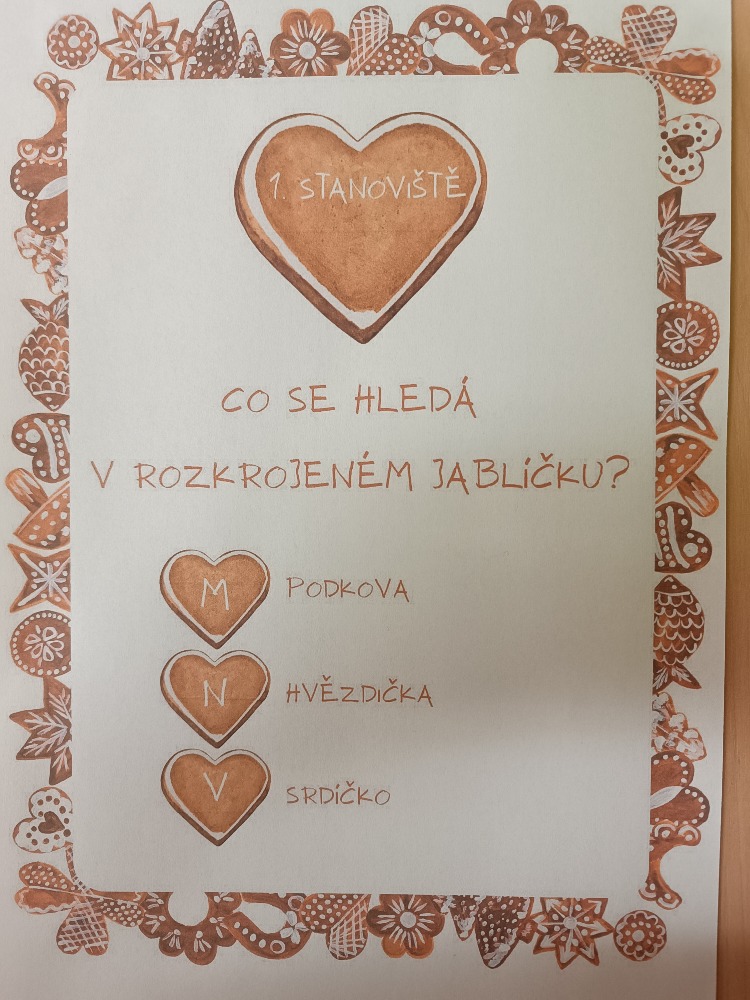 1. STANOVIŠTĚ
CO SE HLEDÁ
V ROZKROJENÉM JABLÍČKU?
M PODKOVA
N HVĚZDIČKA
V SRDÍČKO